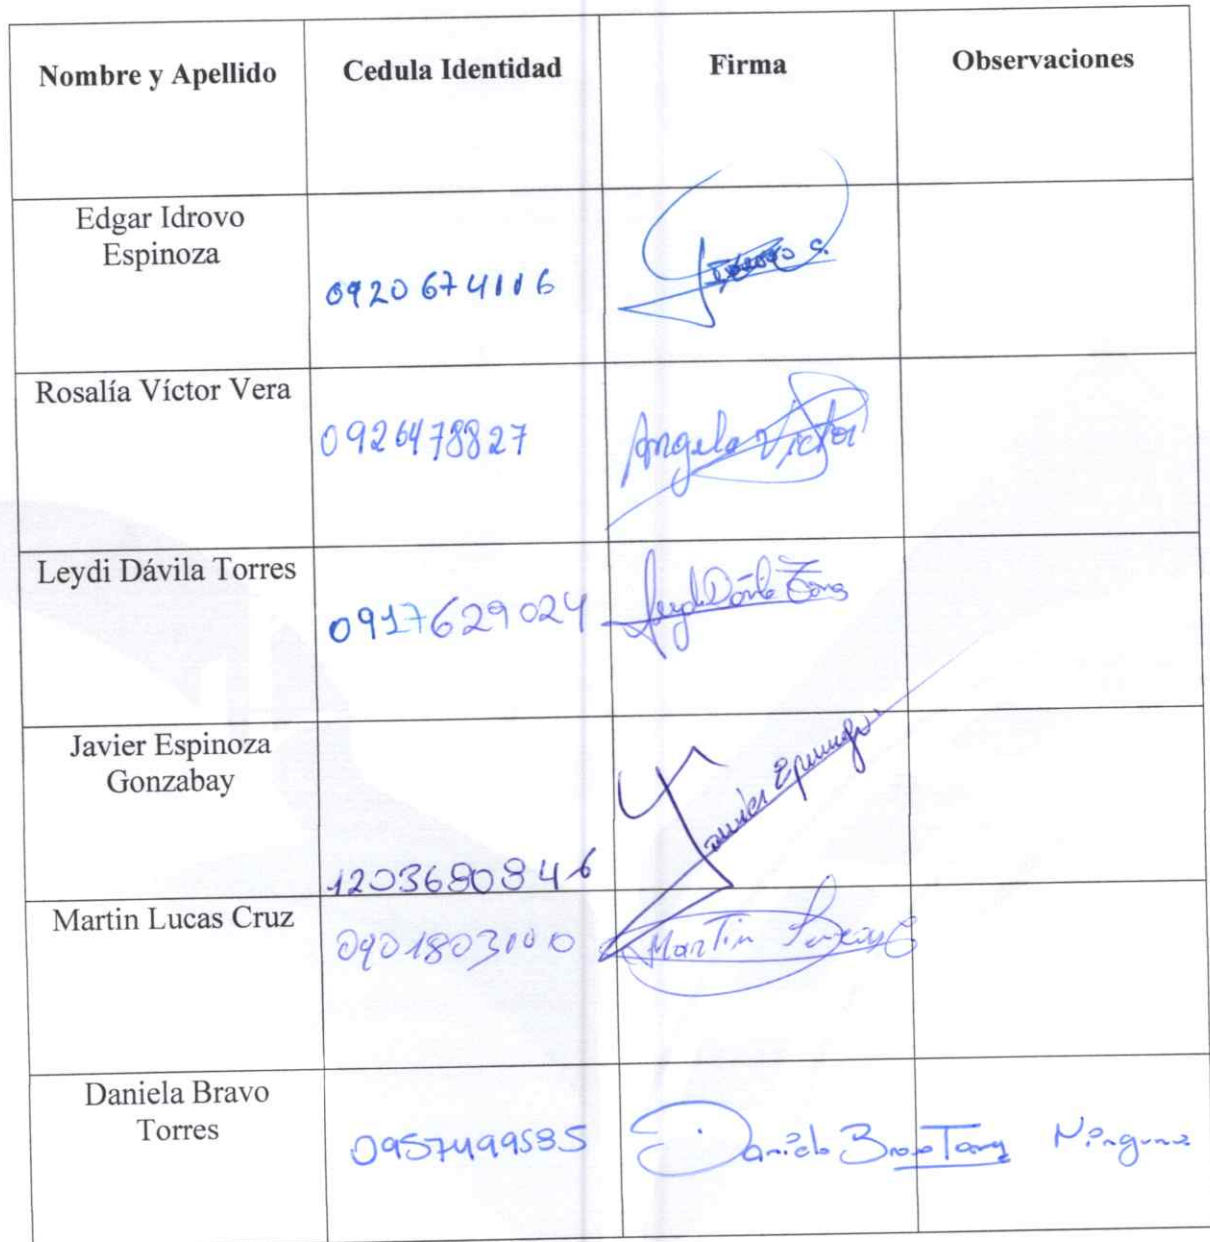 Nombre y Apellido Cedula Identidad Firma Observaciones
Edgar Idrovo
Espinoza
0920674116
Rosalía Víctor Vera
0926478827 Angela Victor
Leydi Dávila Torres
0917629024 Leydi Dávila Torres
Javier Espinoza
Gonzabay
Javier Espinoza
1203680846
Martin Lucas Cruz
0901803100 Martin Lucas C
Daniela Bravo
Torres
0957499585 Daniela Bravo Torres Ninguna